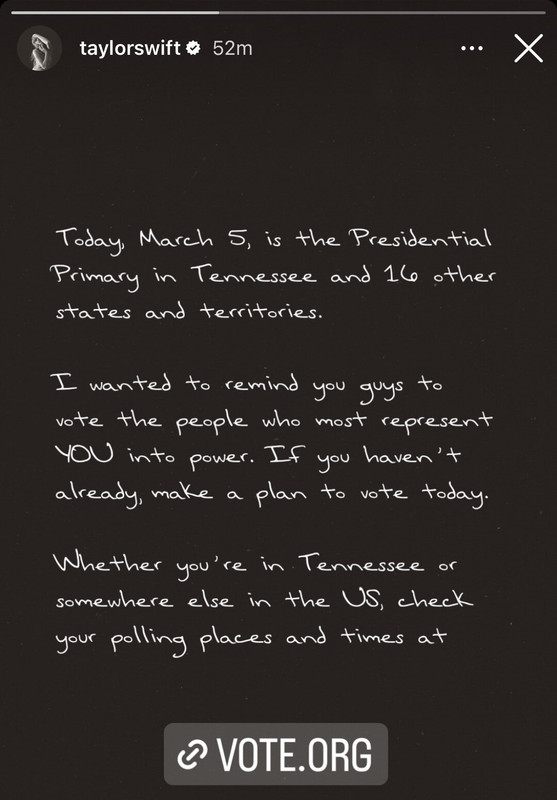 taylorswift 52m
Today, March 5, is the Presidential
Primary in Tennessee and 16 other
states and territories.
I wanted to remind you guys to
vote the people who most represent
YOU into power. If you haven't
already, make a plan to vote today.
Whether you're in Tennessee or
somewhere else in the US, check
your polling places and times at
VOTE.ORG